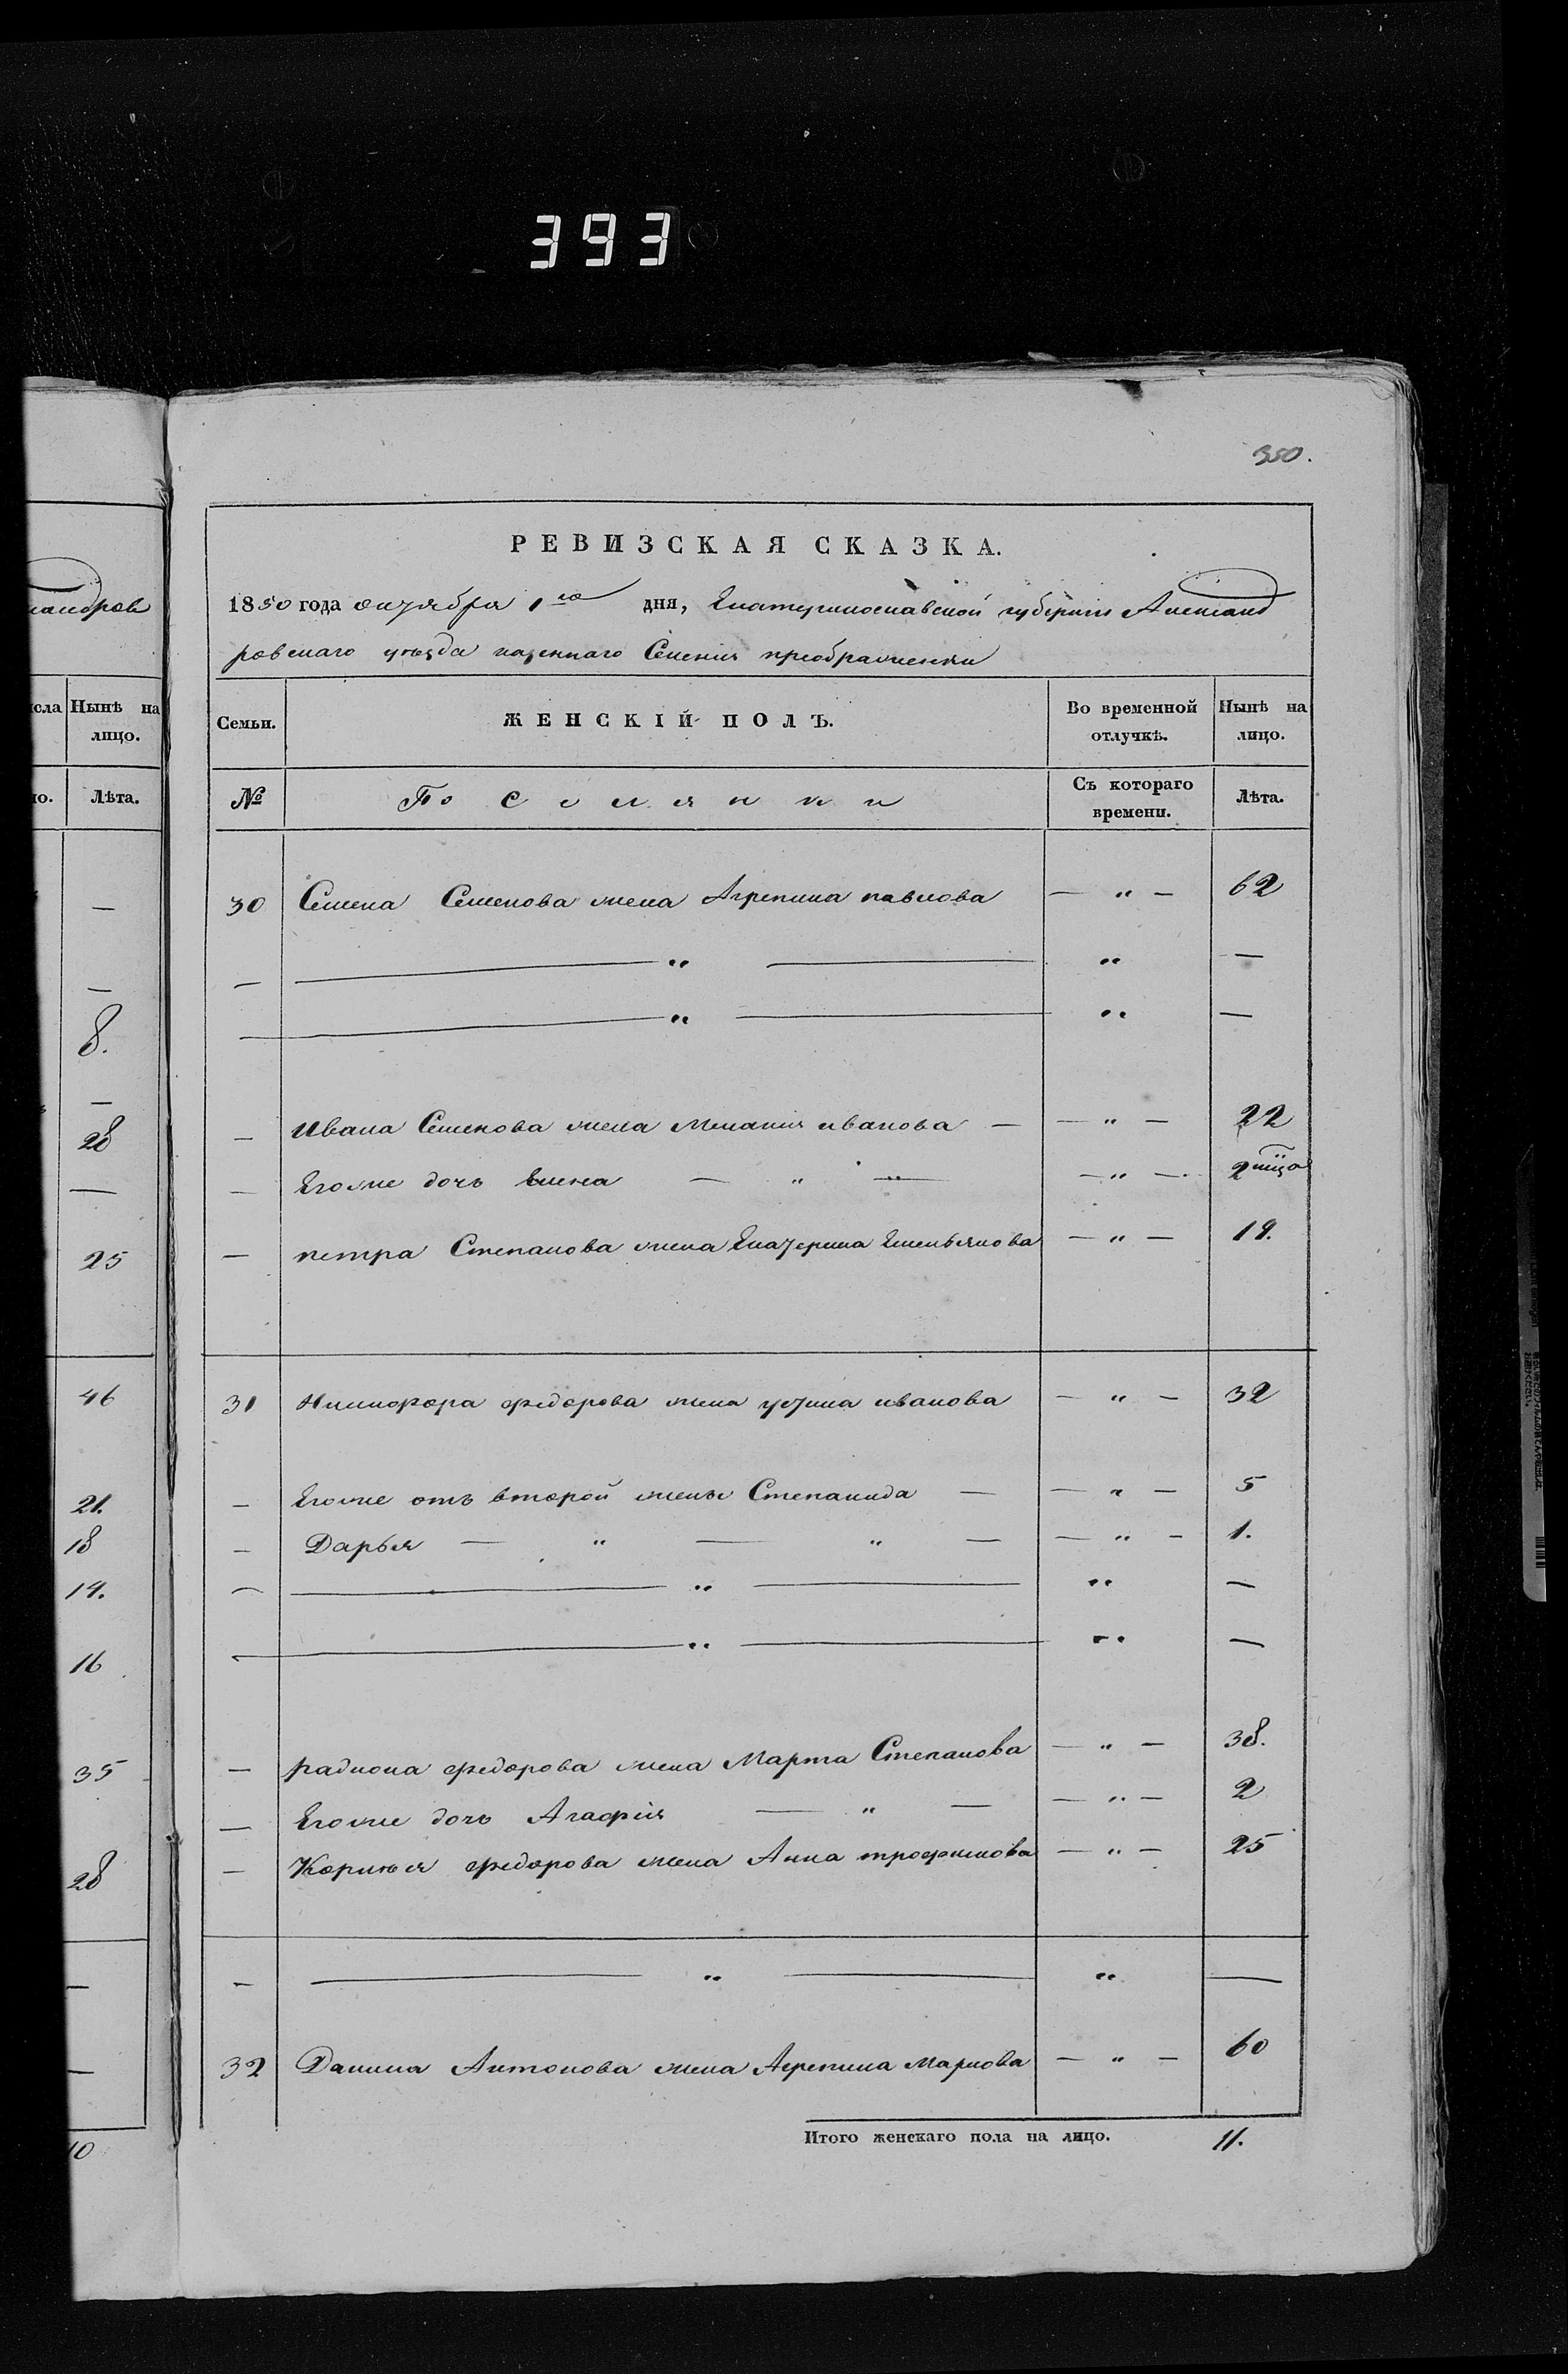 393
350.
андров
РЕВИЗСКАЯ СКАЗКА.
1850 года октября 1го дня, Екатеринославской губернiи Александ
ровскаго уезда казеннаго Селенiя преображенки
исла Нынѣ на лицо.
но. Лѣта.
Семьи. ЖЕНСКIЙ ПОЛЪ. Во временной отлучкѣ. Нынѣ на лицо.
№ Поселянки Съ котораго времени. Лѣта.
—
—
8.
—
28
—
25
46
21.
18
14.
16
35
28
—
—
10
30 Семена Семенова жена Агрепина павлова — „ — 62
— — „ — „ —
— — „ — „ —
— Ивана Семенова жена Мелания иванова — — „ — 22
— Егоже дочь Елена — „ — — „ — 2
— петра Степанова жена Екатерина Емельянова — „ — 19.
31 Никифора федорова жена устина иванова — „ — 32
— Егоже отъ второй жены Степанида — — „ — 5
— Дарья — „ — „ — — „ — 1.
— — „ — „ —
— — „ — „ —
— радиона федорова жена Марта Степанова — „ — 38.
— Егоже дочь Агафiя — „ — — „ — 2
— Корнея федорова жена Анна трофимова — „ — 25
— — „ — „ —
32 Данила Антонова жена Агрепина Маркова — „ — 60
Итого женскаго пола на лицо. 11.